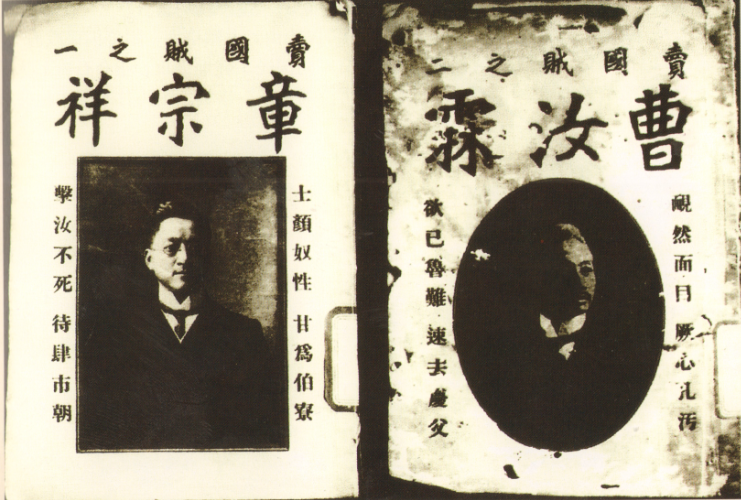 賣國賊之一
章宗祥
士顏奴性 甘爲伯寮
擊汝不死 待肆市朝
賣國賊之二
曹汝霖
靦然面目 厥心孔污
欲已魯難 速去慶父